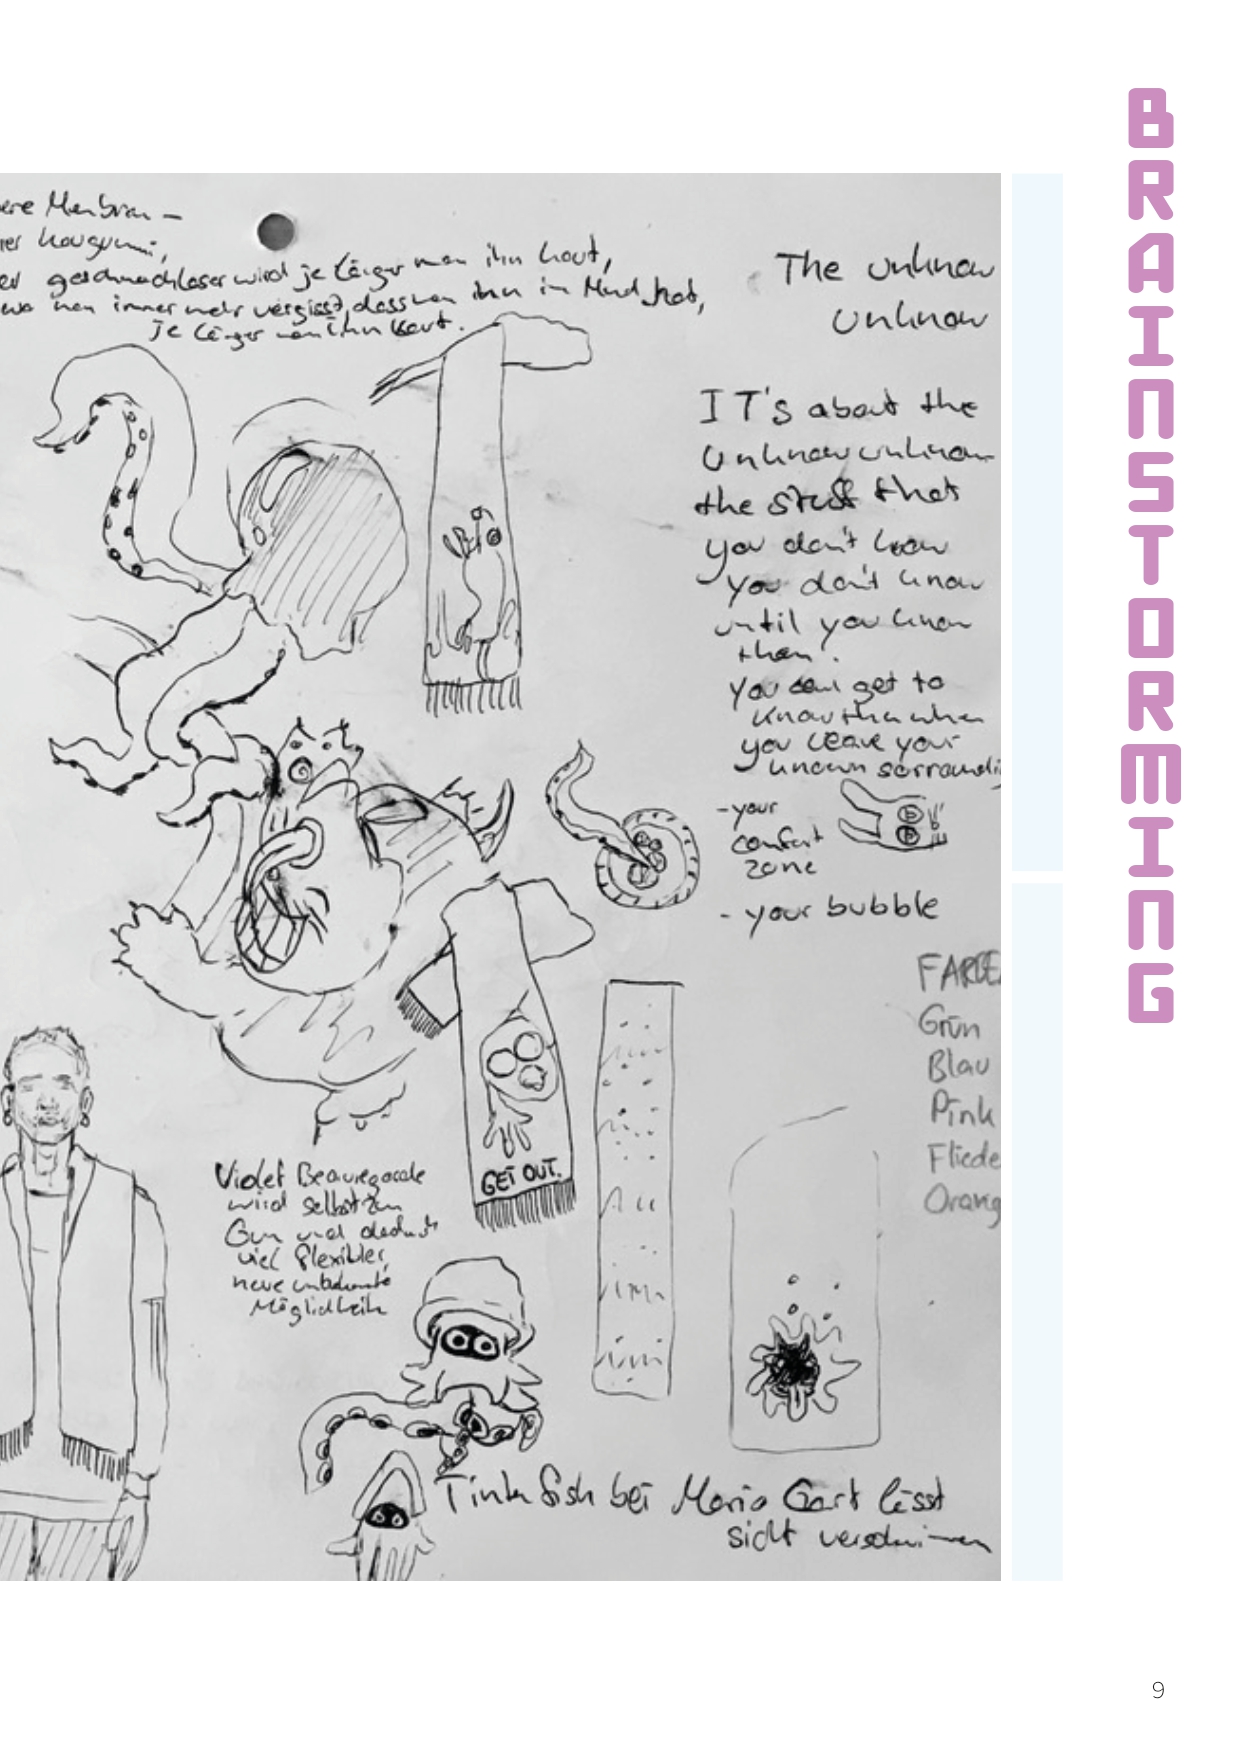 BRAINSTORMING
ere Membran –
er Kaugummi,
er geschmackloser wird je länger man ihn kaut,
wo man immer mehr vergisst, dass man ihn im Mund hat,
je länger man ihn kaut.
The unknow
unknow
IT's about the
unknow unknow
the stuff that
you don't know
you don't know
until you know
them.
you can get to
know them when
you leave your
unown sorroundi
- your
comfort
zone
- your bubble
FARBE
Grün
Blau
Pink
Fliede
Orang
GET OUT.
Violet Beauregarde
wird selbst zum
Gum und dadurch
viel flexibler,
neue unbekannte
Möglichkeiten
Tintnfish bei Mario Cart lässt
sicht verschwimmen
9